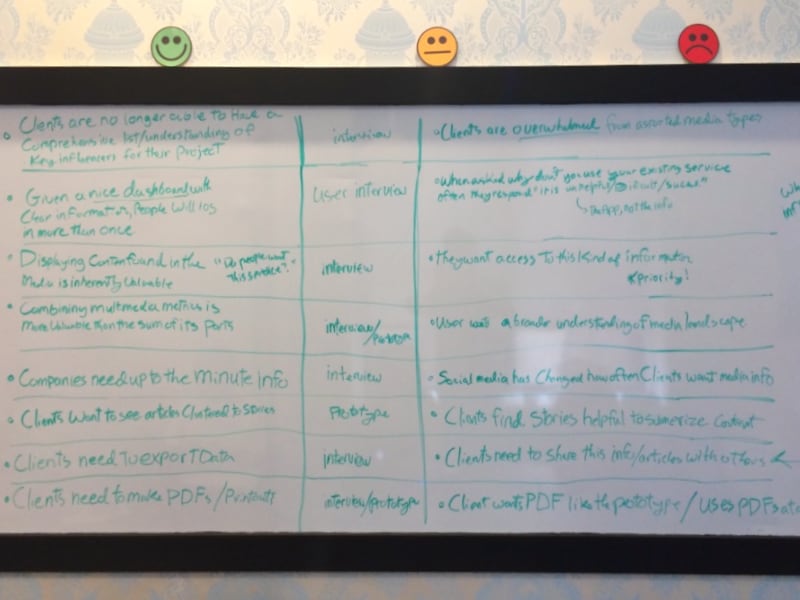 Clients are no longer able to have a
Comprehensive list/understanding of
Key influencers for their Project
interview
Clients are overwhelmed from assorted media types
Given a nice dashboard with
Clear information, People will log
in more than once
User interview
When asked why don't you use your existing service
often they respond "it is unhelpful/dificult/sucks"
The App, not the info
Displaying Content found in the
Media is inherently Valuable
"Do people want
this service?"
interview
They want access To this Kind of information
priority!
Combining multmedia metrics is
More Valuable than the sum of its parts
interview/Prototype
User wants a broader understanding of media landscape
Companies need up to the minute info
interview
Social media has Changed how often Clients want media info
Clients Want to see articles Clustered to Stories
Prototype
Clients find Stories helpful to sumerize Content
Clients need To export Data
interview
Clients need to Share this info/articles with others
Clients need to make PDFs/Printouts
interview/prototype
Client wants PDF like the prototype/Uses PDFs